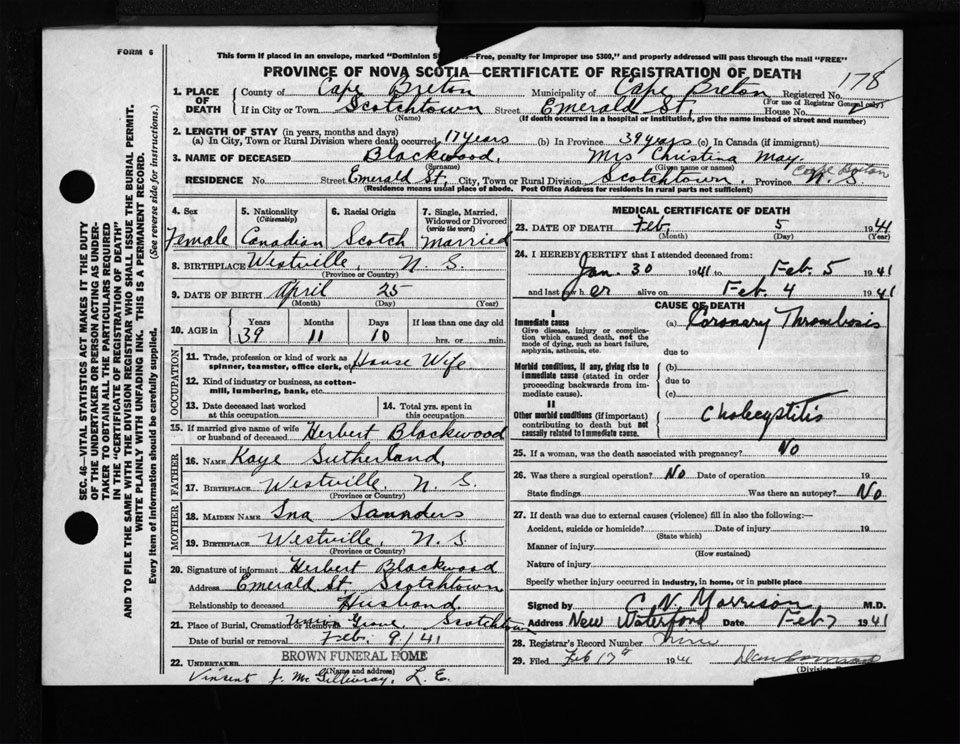 FORM 6
This form if placed in an envelope, marked "Dominion S —Free, penalty for improper use $300," and properly addressed will pass through the mail "FREE"
PROVINCE OF NOVA SCOTIA—CERTIFICATE OF REGISTRATION OF DEATH
178
1. PLACE OF DEATH County of Cape Breton Municipality of Cape Breton Registered No.
(For use of Registrar General only)
If in City or Town Scotchtown Street Emerald St, House No.
(Name) (If death occurred in a hospital or institution, give the name instead of street and number)
2. LENGTH OF STAY (in years, months and days)
(a) In City, Town or Rural Division where death occurred 17 years (b) In Province 39 years (c) In Canada (if immigrant)
3. NAME OF DECEASED Blackwood, Mrs Christina May.
(Surname) (Given name or names)
Cape Breton
RESIDENCE No. Street Emerald St, City, Town or Rural Division Scotchtown. Province N. S
(Residence means usual place of abode. Post Office Address for residents in rural parts not sufficient)
SEC. 46—VITAL STATISTICS ACT MAKES IT THE DUTY
OF THE UNDERTAKER OR PERSON ACTING AS UNDER-
TAKER TO OBTAIN ALL THE PARTICULARS REQUIRED
IN THE "CERTIFICATE OF REGISTRATION OF DEATH"
AND TO FILE THE SAME WITH THE DIVISION REGISTRAR WHO SHALL ISSUE THE BURIAL PERMIT.
WRITE PLAINLY WITH UNFADING INK. THIS IS A PERMANENT RECORD.
Every item of information should be carefully supplied. (See reverse side for instructions.)
4. Sex 5. Nationality 6. Racial Origin 7. Single, Married,
(Citizenship) Widowed or Divorced
(write the word)
Female Canadian Scotch Married
8. BIRTHPLACE Westville, N. S.
(Province or Country)
9. DATE OF BIRTH April 25
(Month) (Day) (Year)
10. AGE in Years Months Days If less than one day old
39 11 10 hrs. or min.
OCCUPATION
11. Trade, profession or kind of work as
spinner, teamster, office clerk, etc House Wife
12. Kind of industry or business, as cotton-
mill, lumbering, bank, etc.
13. Date deceased last worked at this occupation
14. Total yrs. spent in this occupation
15. If married give name of wife
or husband of deceased Herbert Blackwood
FATHER
16. NAME Kaye Sutherland,
17. BIRTHPLACE Westville, N. S.
(Province or Country)
MOTHER
18. MAIDEN NAME Ina Saunders
19. BIRTHPLACE Westville, N. S
(Province or Country)
20. Signature of informant Herbert Blackwood
Address Emerald St, Scotchtown
Relationship to deceased Husband,
21. Place of Burial, Cremation or Removal Union Grove, Scotchtown
Date of burial or removal Feb. 9/41
BROWN FUNERAL HOME
22. UNDERTAKER
(Name and address)
Vinsent J. McGillivray, L. E.
MEDICAL CERTIFICATE OF DEATH
23. DATE OF DEATH Feb, 5 1941
(Month) (Day) (Year)
24. I HEREBY CERTIFY that I attended deceased from:
Jan. 30 1941 to Feb. 5 1941
and last saw h er alive on Feb. 4 1941
CAUSE OF DEATH
I
Immediate cause (a) Coronary Thrombosis
Give disease, injury or complica-
tion which caused death, not the
mode of dying, such as heart failure,
asphyxia, asthenia, etc.
due to
Morbid conditions, if any, giving rise to (b)
immediate cause (stated in order
proceeding backwards from im-
mediate cause).
due to
(c)
II
Other morbid conditions (if important)
contributing to death but not
causally related to immediate cause.
Cholecystitis
25. If a woman, was the death associated with pregnancy? No
26. Was there a surgical operation? No Date of operation 19
State findings Was there an autopsy? No
27. If death was due to external causes (violence) fill in also the following:—
Accident, suicide or homicide? Date of injury 19
(State which)
Manner of injury
(How sustained)
Nature of injury
Specify whether injury occurred in industry, in home, or in public place
Signed by C N Morrison M.D.
Address New Waterford Date Feb 7 1941
28. Registrar's Record Number
29. Filed Feb 17th 1941
(Division